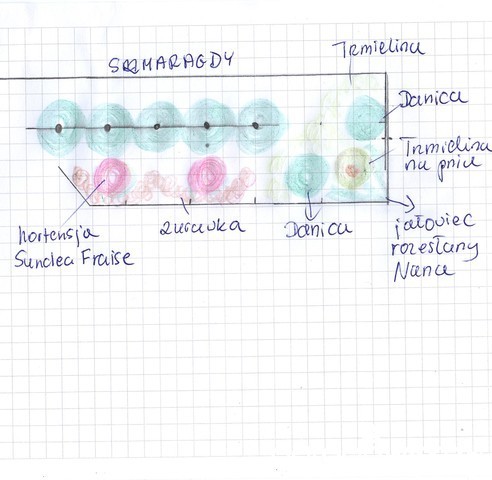 SZMARAGDY
Trzmielina
Danica
Trzmielina
na pniu
hortensja
Sundea Fraise
żurawka
Danica
jałowiec
rozesłany
Nana